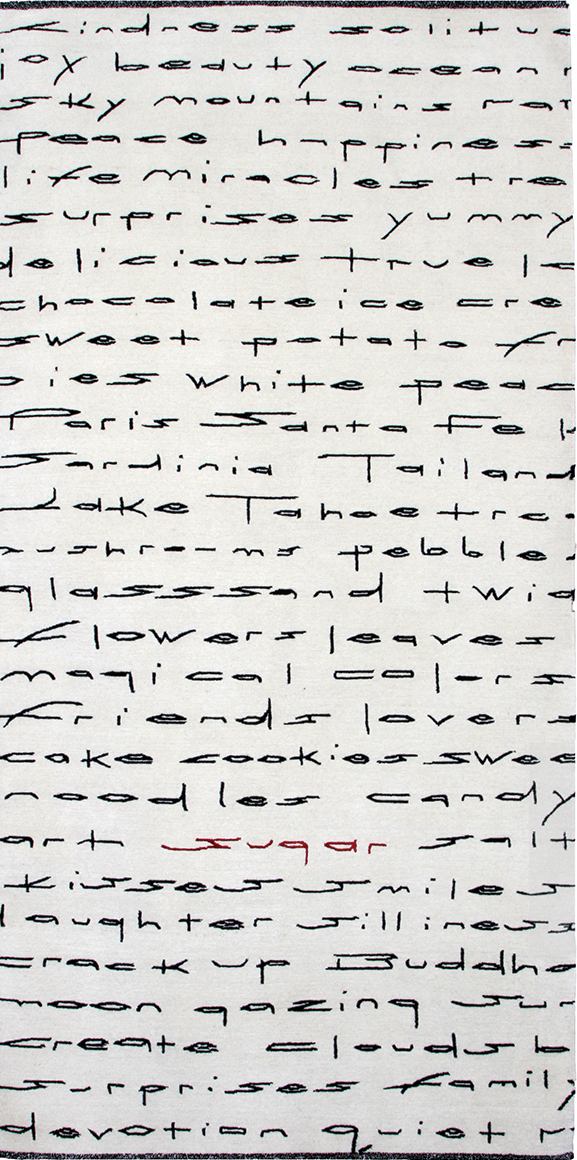 kindness solitu
joy beauty ocean
sky mountains
peace happiness
life miracles tre
surprises yummy
delicious true
chocolate ice cre
sweet potato fr
ies white peac
Paris Santa Fe
Sardinia Tailand
Lake Tahoe tre
mushrooms pebbles
glasssand twig
flowers leaves
magical colors
friends lovers
cake cookies swee
noodles candy
art sugar salt
kisses smiles
laughter silliness
crack up Buddha
moon gazing sur
create clouds b
surprises family
devotion quiet